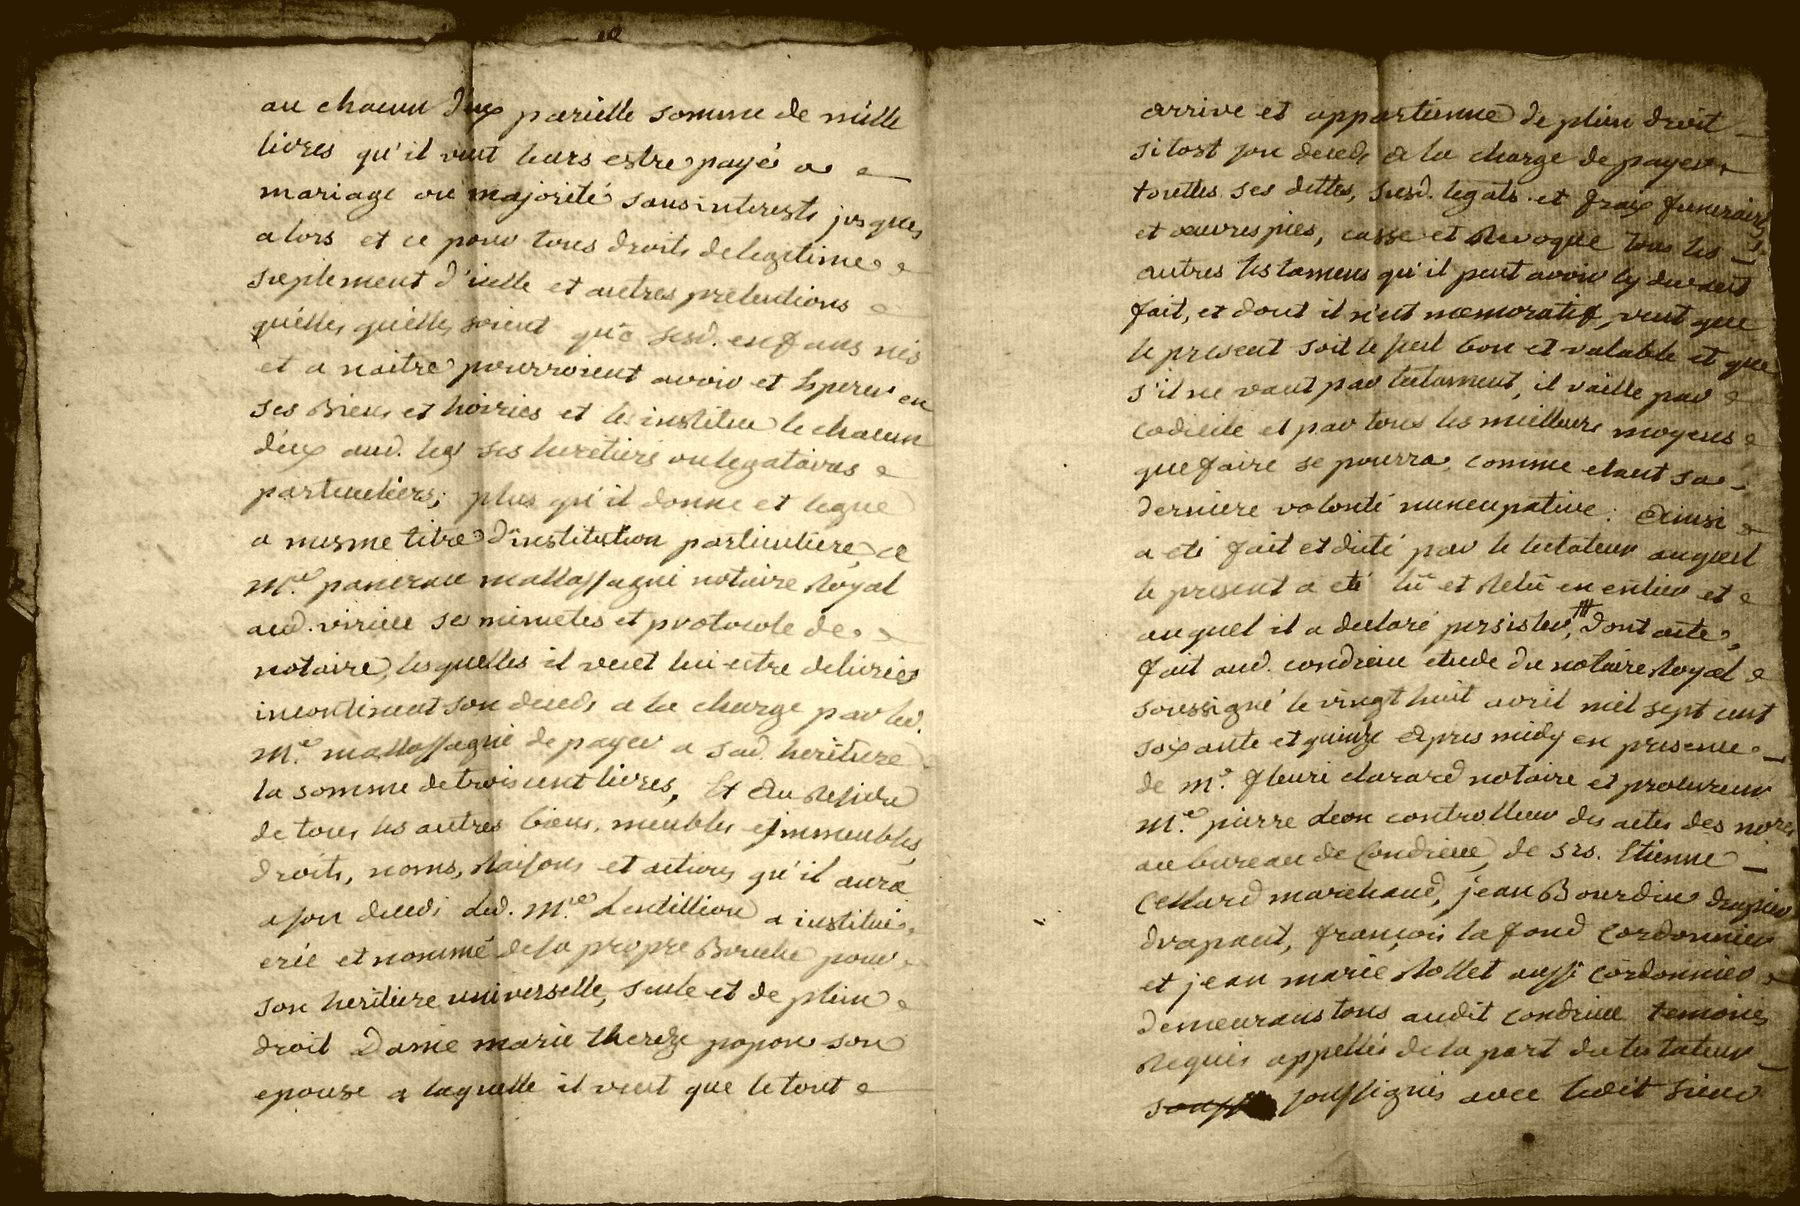 au chacun d'eux parielle somme de mille
livres qu'il veut leurs estre payé a
mariage ou majorité sans interests jusques
alors et ce pour tous droits de legitime
suplement d'icelle et autres pretentions
quelles quelles soient que sesd. enfans nés
et a naitre pourroient avoir et esperer en
ses Biens et hoiries et les institue le chacun
d'eux aud. leg ses heretiers ou legataires
particuliers; plus qu'il donne et legue
a mesme titre d'institution particuliere, a
M.e pancrace mallassagne notaire Royal
aud. virieu ses minutes et protocole de
notaire, lesquelles il veut lui estre delivrées
incontinent son deceds a la charge par led.
M.e mallassagne de payer a sad. heritiere
la somme de trois cent livres, Et Au Residu
de tous les autres biens, meubles et immeubles,
droits, noms, Raisons et actions qu'il aura
a son deceds led. M.e Lentillion a institué,
créé et nommé de sa propre Bouche pour
son heritiere universelle, seule et de plein
droit Dame marie thereze popon son
epouse a laquelle il veut que le tout
arrive et appartienne de plein droit
sitost son deceds a la charge de payer
touttes ses dettes, susd. legats et fraix funeraires
et œuvres pies, casse et Revoque tous les
autres testamens qu'il peut avoir cy devant
fait, et dont il n'est memoratif, veut que
le present soit le seul bon et valable et que
s'il ne vaut par testament, il vaille par
codicile et par tous les meilleurs moyens
que faire se pourra, comme etant sa
derniere volonté nuncupative: Ainsi
a eté fait et dicté par le testateur auquel
le present a eté lû et Relû en entier et
auquel il a declaré persister, dont acte,
fait aud. condrieu etude du notaire Royal
soussigné le vingt huit avril mil sept cent
soixante et quinze apres midy en presence
de M.e fleuri clarard notaire et procureur
M.e pierre Leon controlleur des actes des nores
au bureau de Condrieu, de srs. Etienne
Cellard marchand, jean Bourdin
drapant, françois la fond Cordonnier
et jean marie Rollet aussi cordonnier
demeurans tous audit condrieu temoins
Requis appellés de la part du testateur
soussignés avec ledit sieur